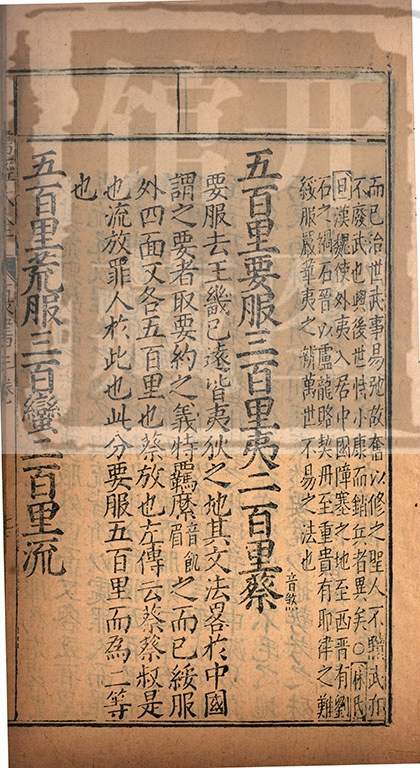 而已治世武事易弛故奮以修之聖人不黷武亦
不廢武也與後世恃小康而銷兵者異矣○林氏
曰漢魏使外夷入居中國障塞之地至西晉有劉
石之禍石晉以盧龍賂契丹至重貴有耶律之難
綏服嚴華夷之辨萬世不易之法也
五百里要服三百里夷二百里蔡音煞
要服去王畿已遠皆夷狄之地其文法畧於中國
謂之要者取要約之義特羈縻音飢眉之而已綏服
外四面又各五百里也蔡放也左傳云蔡蔡叔是
也流放罪人於此也此分要服五百里而為二等
也
五百里荒服三百里蠻二百里流